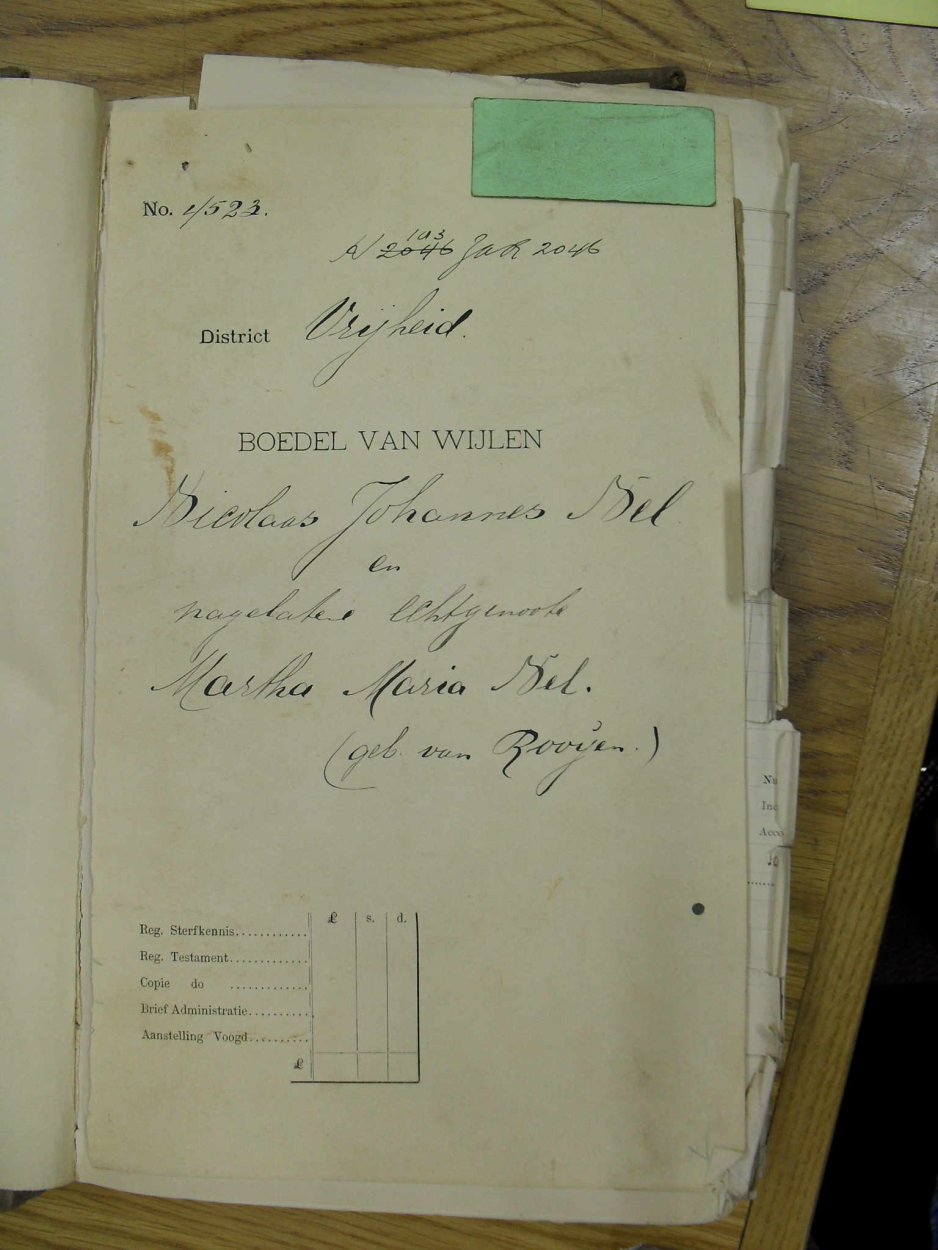 No. 4523.
103
2046 JaR 2046
District Vrijheid.
BOEDEL VAN WIJLEN
Nicolaas Johannes Nel
en
nagelatene echtgenoote
Martha Maria Nel.
(geb. van Rooÿen.)
£ s. d.
Reg. Sterfkennis............
Reg. Testament.............
Copie do .............
Brief Administratie...........
Aanstelling Voogd..........
£
Nu
Inc
Acco